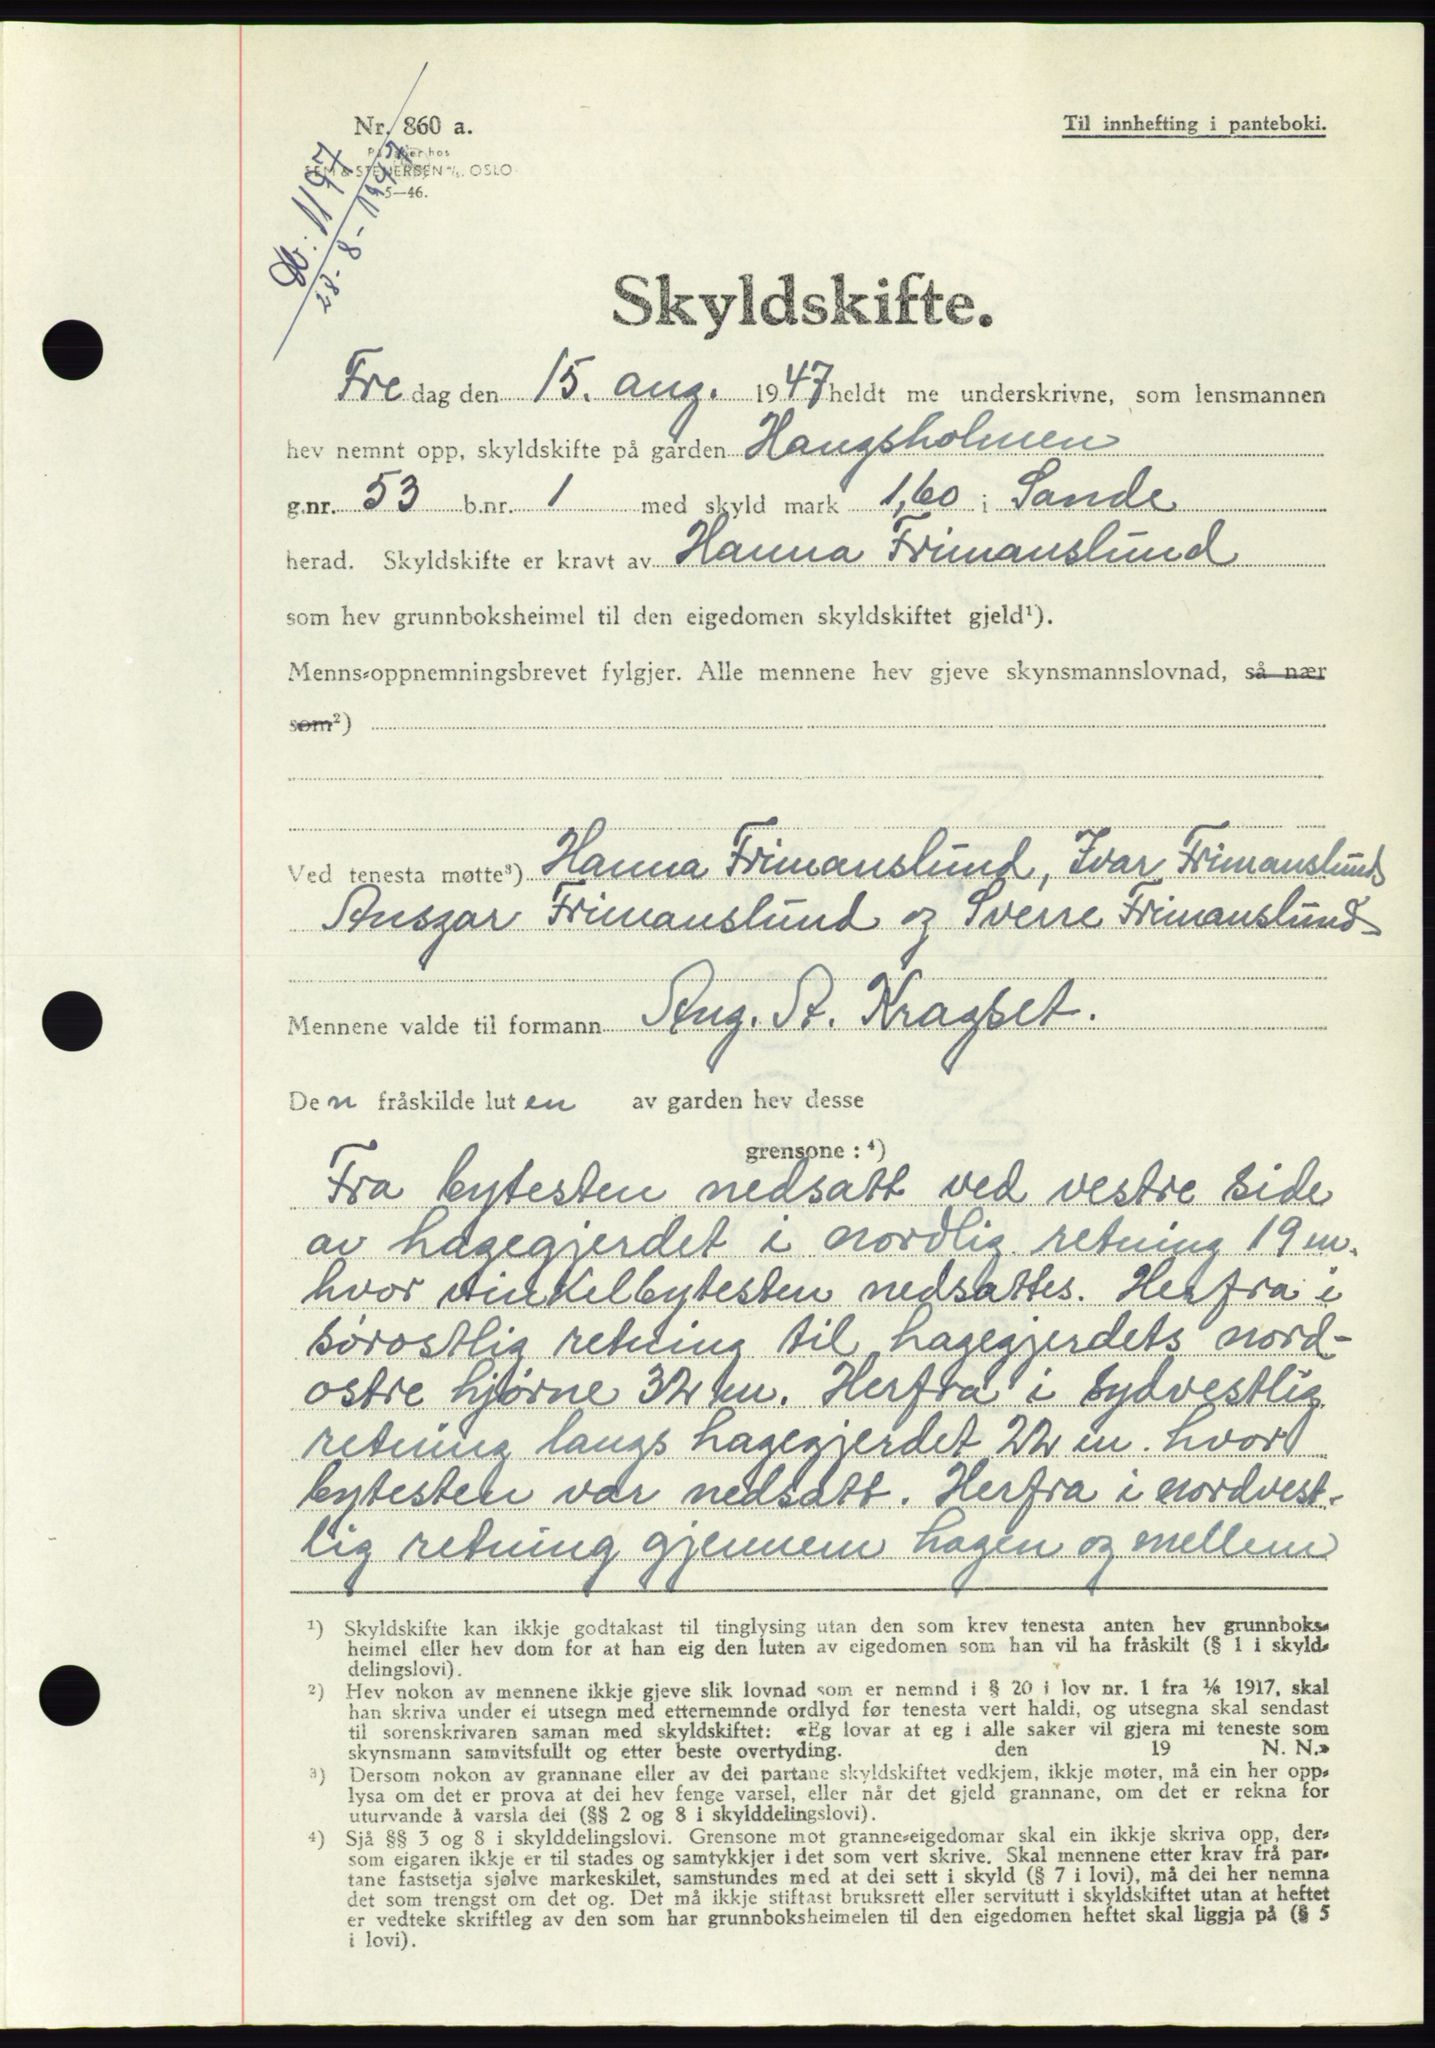 Nr. 860 a.
Til innhefting i panteboki.
På lager hos
SEM & STENERSEN A/S, OSLO
5—46.
Db: 1197
28-8-1947
Skyldskifte.
Fredag den 15. aug. 1947 heldt me underskrivne, som lensmannen
hev nemnt opp, skyldskifte på garden Haugsholmen
g.nr. 53 b.nr. 1 med skyld mark 1,60 i Sande
herad. Skyldskifte er kravt av Hanna Frimanslund
som hev grunnboksheimel til den eigedomen skyldskiftet gjeld¹).
Menns-oppnemningsbrevet fylgjer. Alle mennene hev gjeve skynsmannslovnad, så nær
som²)
Ved tenesta møtte³) Hanna Frimanslund, Ivar Frimanslund
Ansgar Frimanslund og Sverre Frimanslund
Mennene valde til formann Aug. A. Kragset.
Den fråskilde luten av garden hev desse
grensone : ⁴)
Fra bytesten nedsatt ved vestre side
av hagegjerdet i nordlig retning 19 m.
hvor vinkelbytesten nedsattes. Herfra i
sørostlig retning til hagegjerdets nord-
ostre hjørne 32 m. Herfra i sydvestlig
retning langs hagegjerdet 22 m. hvor
bytesten var nedsatt. Herfra i nordvest-
lig retning gjennem hagen og mellem
¹) Skyldskifte kan ikkje godtakast til tinglysing utan den som krev tenesta anten hev grunnboks-
heimel eller hev dom for at han eig den luten av eigedomen som han vil ha fråskilt (§ 1 i skyld-
delingslovi).
²) Hev nokon av mennene ikkje gjeve slik lovnad som er nemnd i § 20 i lov nr. 1 fra 1/6 1917, skal
han skriva under ei utsegn med etternemnde ordlyd før tenesta vert haldi, og utsegna skal sendast
til sorenskrivaren saman med skyldskiftet: «Eg lovar at eg i alle saker vil gjera mi teneste som
skynsmann samvitsfullt og etter beste overtyding. den 19 N. N.»
³) Dersom nokon av grannane eller av dei partane skyldskiftet vedkjem, ikkje møter, må ein her opp-
lysa om det er prova at dei hev fenge varsel, eller når det gjeld grannane, om det er rekna for
uturvande å varsla dei (§§ 2 og 8 i skylddelingslovi).
⁴) Sjå §§ 3 og 8 i skylddelingslovi. Grensone mot granne-eigedomar skal ein ikkje skriva opp, der-
som eigaren ikkje er til stades og samtykkjer i det som vert skrive. Skal mennene etter krav frå par-
tane fastsetja sjølve markeskilet, samstundes med at dei sett i skyld (§ 7 i lovi), må dei her nemna
det som trengst om det og. Det må ikkje stiftast bruksrett eller servitutt i skyldskiftet utan at heftet
er vedteke skriftleg av den som har grunnboksheimelen til den eigedomen heftet skal liggja på (§ 5
i lovi).